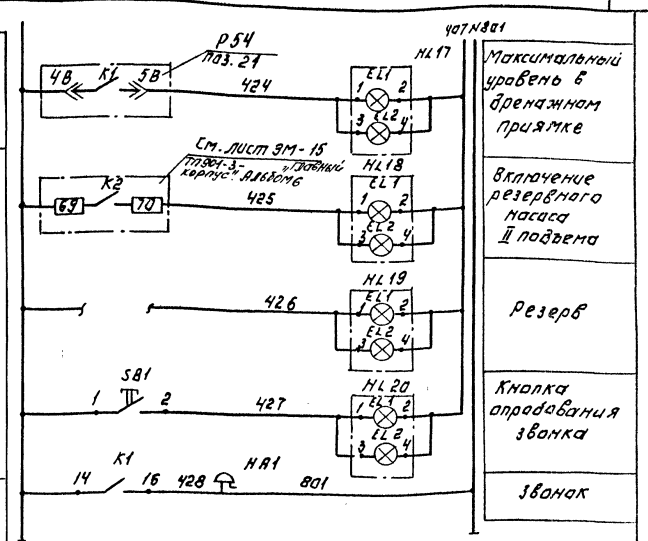 407 N801
Р54
поз. 21
HL17
4В К1 5В
424
EL1
1 2
EL2
3 4
Максимальный
уровень в
дренажном
приямке
См. лист ЭМ-15
ТП901-3- "Главный
корпус". Альбом 6
HL18
69 К2 70
425
EL1
1 2
EL2
3 4
Включение
резервного
насоса
II подъема
HL19
426
EL1
1 2
EL2
3 4
Резерв
HL20
SB1
1 2
427
EL1
1 2
EL2
3 4
Кнопка
опробования
звонка
К1 HA1
14 16 428 801
Звонок